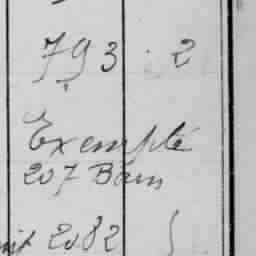 793 2
Exempté
207 Bain
2082